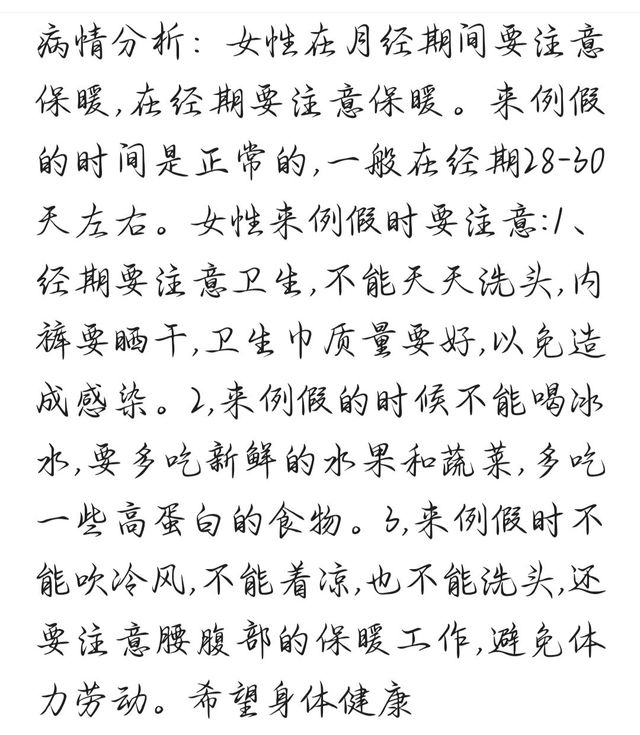 病情分析：女性在月经期间要注意
保暖,在经期要注意保暖。来例假
的时间是正常的,一般在经期28-30
天左右。女性来例假时要注意:1、
经期要注意卫生,不能天天洗头,内
裤要晒干,卫生巾质量要好,以免造
成感染。2,来例假的时候不能喝冰
水,要多吃新鲜的水果和蔬菜,多吃
一些高蛋白的食物。3,来例假时不
能吹冷风,不能着凉,也不能洗头,还
要注意腰腹部的保暖工作,避免体
力劳动。希望身体健康